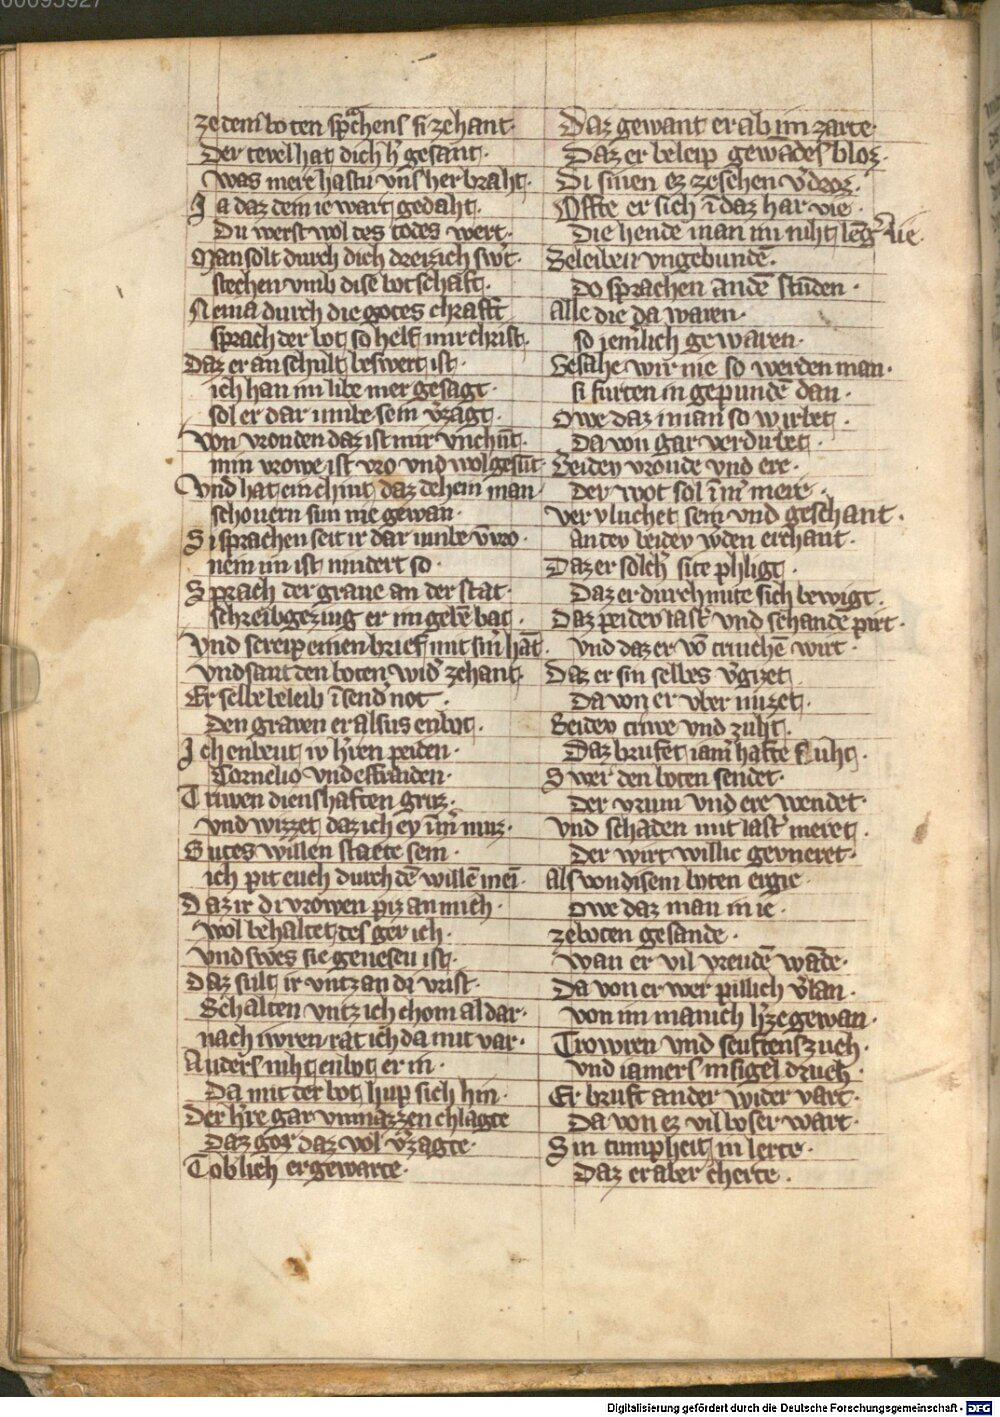 ze dem boten sprachens si zehant·
Der tevel hat dich h' gesant·
was mere hastu vns her braht·
Ia daz dem ie wart gedaht·
Du werst wol des todes wert·
Man solt durch dich dreizich swt·
stechen vmb dise botschaft·
Neina durch die gotes chrafft
sprach der bot so helf mir christ·
Daz er an schult beswert ist·
ich han im libe mer gesagt·
sol er dar vmbe sein v'zagt·
von vrouden daz ist mir vnchūt·
min vrowe ist vro vnd wol gesūt·
Vnd hat ein chint daz dehein man
schonern sun nie gewan·
Si sprachen seit ir dar vmbe vnvro·
nein im ist nindert so·
Sprach der graue an der stat·
schreibgezing er im gebē bat·
Vnd screip einen brief mit sin' hāt·
vnd sant den boten wid' zehant·
Er selbe beleib ī send' not·
Den graven er alsus enbot·
Ich enbeut iv h'ren peiden·
Cornelio vnd effraiden·
Triwen diensthaften gruz·
vnd wizzet daz ich ey īm' muz·
Gutes willen staete sein·
ich pit euch durch dē willē mei·
Daz ir di vrowen piz an mich·
wol behaltet des ger ich·
vnd swes sie genesen ist·
Daz sult ir vntz an di vrist·
Behalten vntz ich chom al dar·
nach iwren rat ich da mit var·
Anders niht enbot er in·
Da mit der bot hup sich hin·
Der h're gar vnmazzen chlagte
Daz gor daz vol v'zagte·
Toblich er gewarte·
Daz gewant er ab im zarte·
Daz er beleip gewādes bloz·
Di sinen ez ze sehen v'droz·
Offte er sich ī daz har vie·
Die hende man im niht leng' lie·
Beleiben vngebundē·
Do sprachen an dē stūden·
Alle die da waren·
so iem'lich gewaren·
Gesahe wir nie so werden man·
si furten in gepundē dan·
Owe daz man so wirbet·
Da von gar verdirbet·
Beidev vroude vnd ere·
Der bot sol īm' mere·
ver vluchet sein vnd geschant·
an dev beidev w'den erchant·
Daz er solch' site phligt·
Daz er durch miete sich bewigt·
Daz peidev last' vnd schande pirt·
vnd daz er vō trinchē wirt·
Daz er sin selbes v'gizet·
Da von er vber nizet·
Beidev triwe vnd zuht·
Daz brufet iam'hafte fluht·
Swer den boten sendet·
Der vrum vnd ere wendet·
vnd schaden mit last' meret·
Der wirt willic gevneret·
Als von disem boten ergie·
Owe daz man in ie·
ze boten gesande·
wan er vil vreudē wāde·
Da von er wer pillich v'lan·
von im manich h'ze gewan·
Trowren vnd seuftens zuch·
vnd iamers insigel druch·
Er bruft an der wider vart·
Da von ez vil boser wart·
Sin tumpheit in lerte·
Daz er aber cherte·
Digitalisierung gefördert durch die Deutsche Forschungsgemeinschaft - DFG